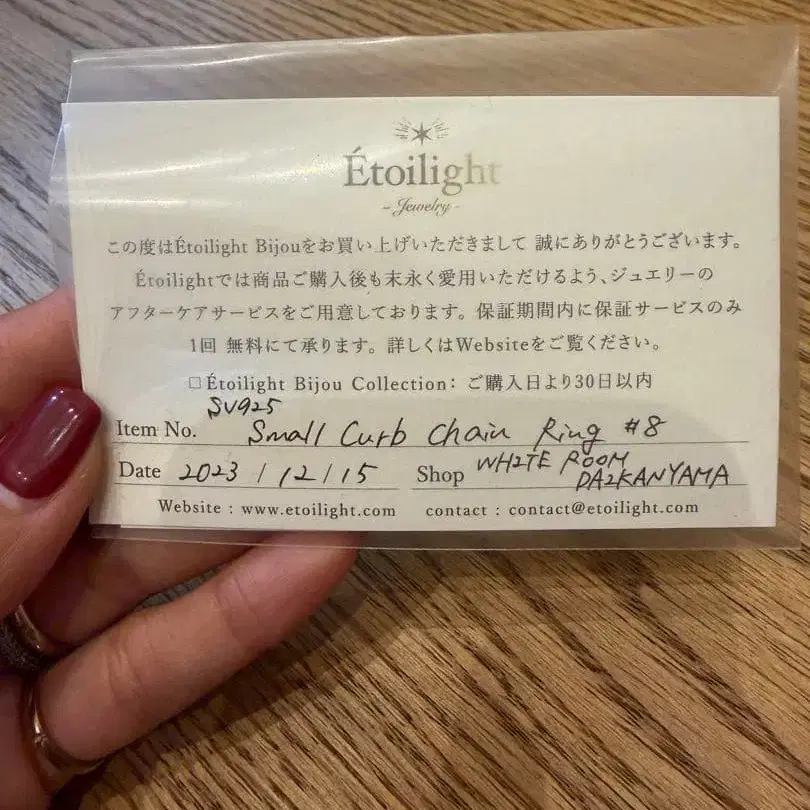 Étoilight
- Jewelry -
この度はÉtoilight Bijouをお買い上げいただきまして 誠にありがとうございます。
Étoilightでは商品ご購入後も末永く愛用いただけるよう、ジュエリーの
アフターケアサービスをご用意しております。保証期間内に保証サービスのみ
1回 無料にて承ります。詳しくはWebsiteをご覧ください。
□Étoilight Bijou Collection: ご購入日より30日以内
SV925
Item No. Small Curb Chain Ring #8
Date 2023 / 12 / 15 Shop WHITE ROOM
DAIKANYAMA
Website : www.etoilight.com contact : contact@etoilight.com